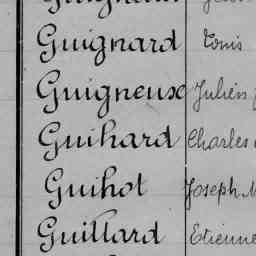 Guignard Louis
Guigneux Julien
Guihard Charles
Guihot Joseph M
Guillard Etienne